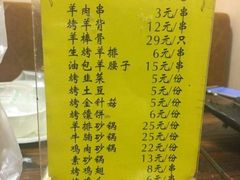 羊肉串 3元/串
烤羊背 12元/串
羊棒骨 29元/只
生烤羊排 6元/串
油包羊腰子 15元/串
烤韭菜 5元/份
烤土豆 5元/份
烤金针菇 5元/份
烤馒饼 6元/份
羊排砂锅 25元/份
牛腩砂锅 25元/份
鸡肉砂锅 22元/份
素砂锅 13元/份
烤鸡翅 8元/串